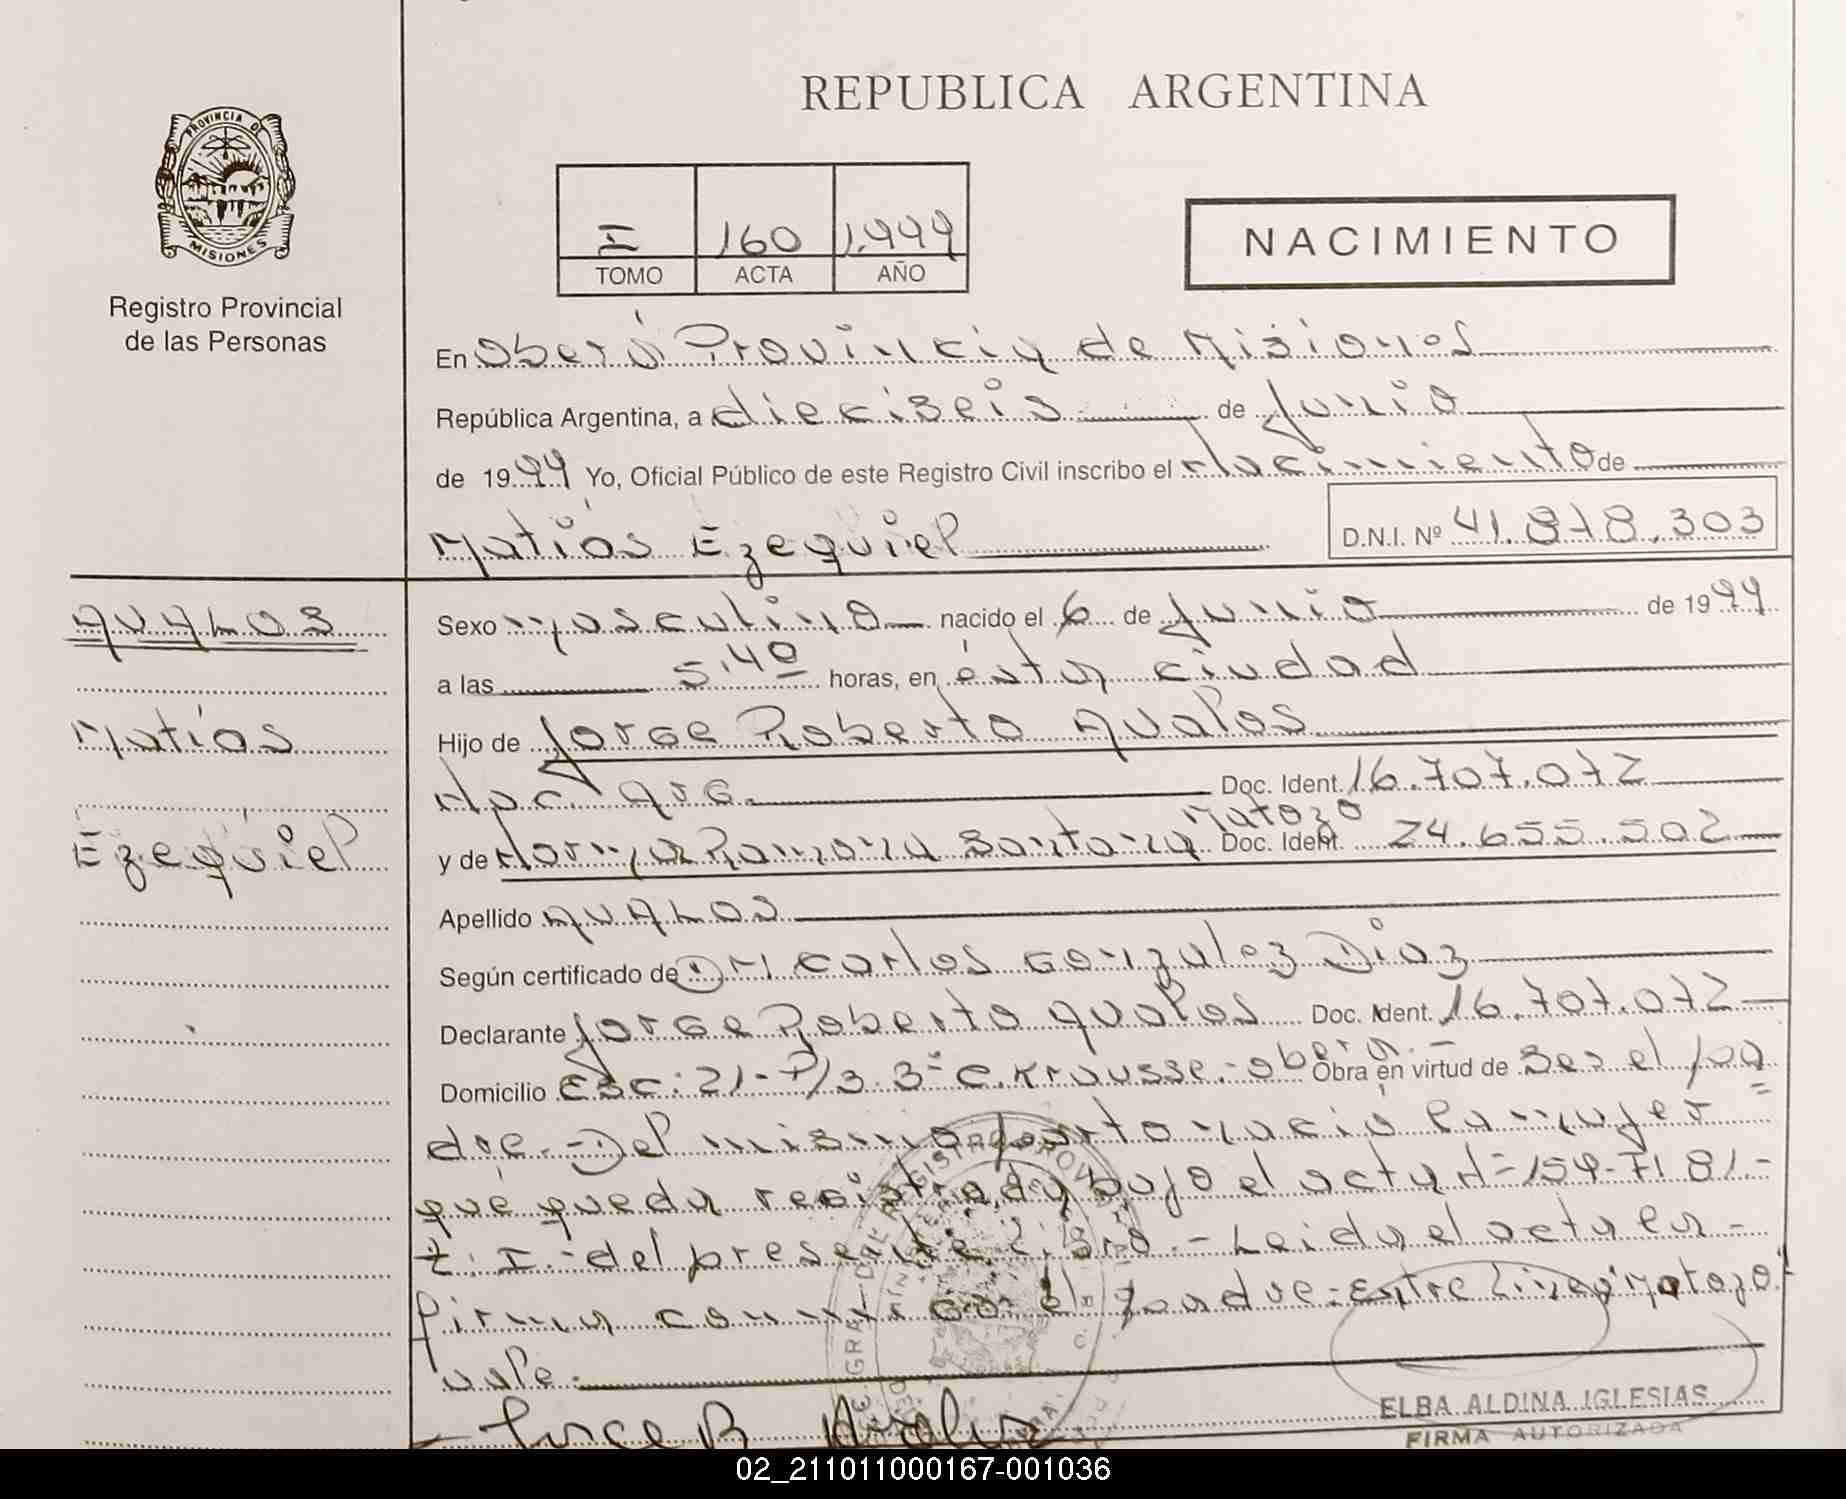 REPUBLICA ARGENTINA
PROVINCIA DE
MISIONES
Registro Provincial
de las Personas
I 160 1.999
TOMO ACTA AÑO
NACIMIENTO
En Oberá Provincia de Misiones
República Argentina, a dieciseis de Junio
de 1999 Yo, Oficial Público de este Registro Civil inscribo el Nacimiento de
Matías Ezequiel
D.N.I. Nº 41.878.303
AVALOS
Matías
Ezequiel
Sexo masculino nacido el 6 de Junio de 1999
a las 5.40 horas, en ésta ciudad
Hijo de Jorge Roberto Avalos
Nac. arg. Doc. Ident. 16.707.072
Matozo
y de Norma Ramona Santana Doc. Ident. 24.655.502
Apellido AVALOS
Según certificado de Dr. Carlos Gonzalez Diaz
Declarante Jorge Roberto Avalos Doc. Ident. 16.707.072
Domicilio Esc: 21- P/3 3º C. Krausse.- Oberá.- Obra en virtud de Ser el pa
dre.- Del mismo parto nació la mujer
que queda registrada bajo el acta Nº 159- Fl 81.-
t. I.- del presente Libro.- Leida el acta la
firma conmigo el padre: Entre Linea "Matozo"
vale.
Jorge R Avalos
ELBA ALDINA IGLESIAS
FIRMA AUTORIZADA
02_211011000167-001036